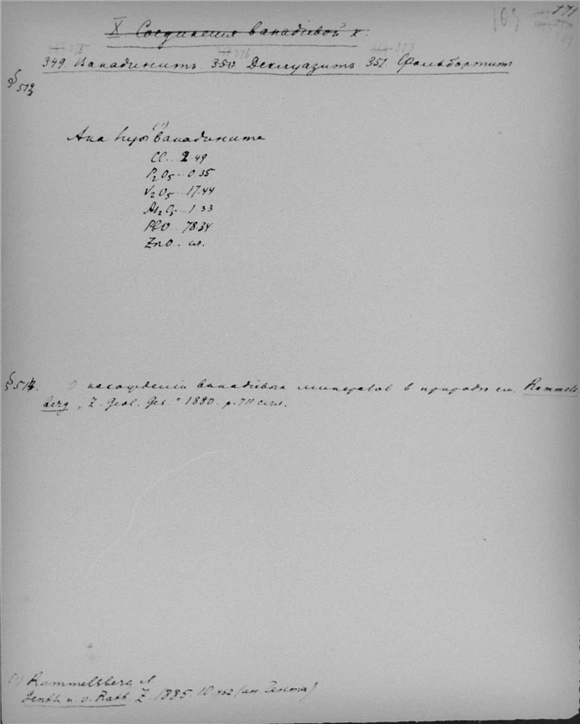 X Соединения ванадіевой к.
349. Ванадинитъ. 350 Деклуазитъ. 351 Фольбортитъ
§ 513
ванадинита
Cl .. 2.49
P₂O₅ .. 0.35
V₂O₅ .. 17.44
As₂O₅ .. 1.33
PbO .. 78.34
ZnO .. сл.
§ 514. О нахожденіи ванадіевыхъ минераловъ в природѣ см. Rammels-
berg, "Z. Geol. Ges." 1880. p. 711
(1) Rammelsberg
Genth u. v. Rath Z. 1885. 10